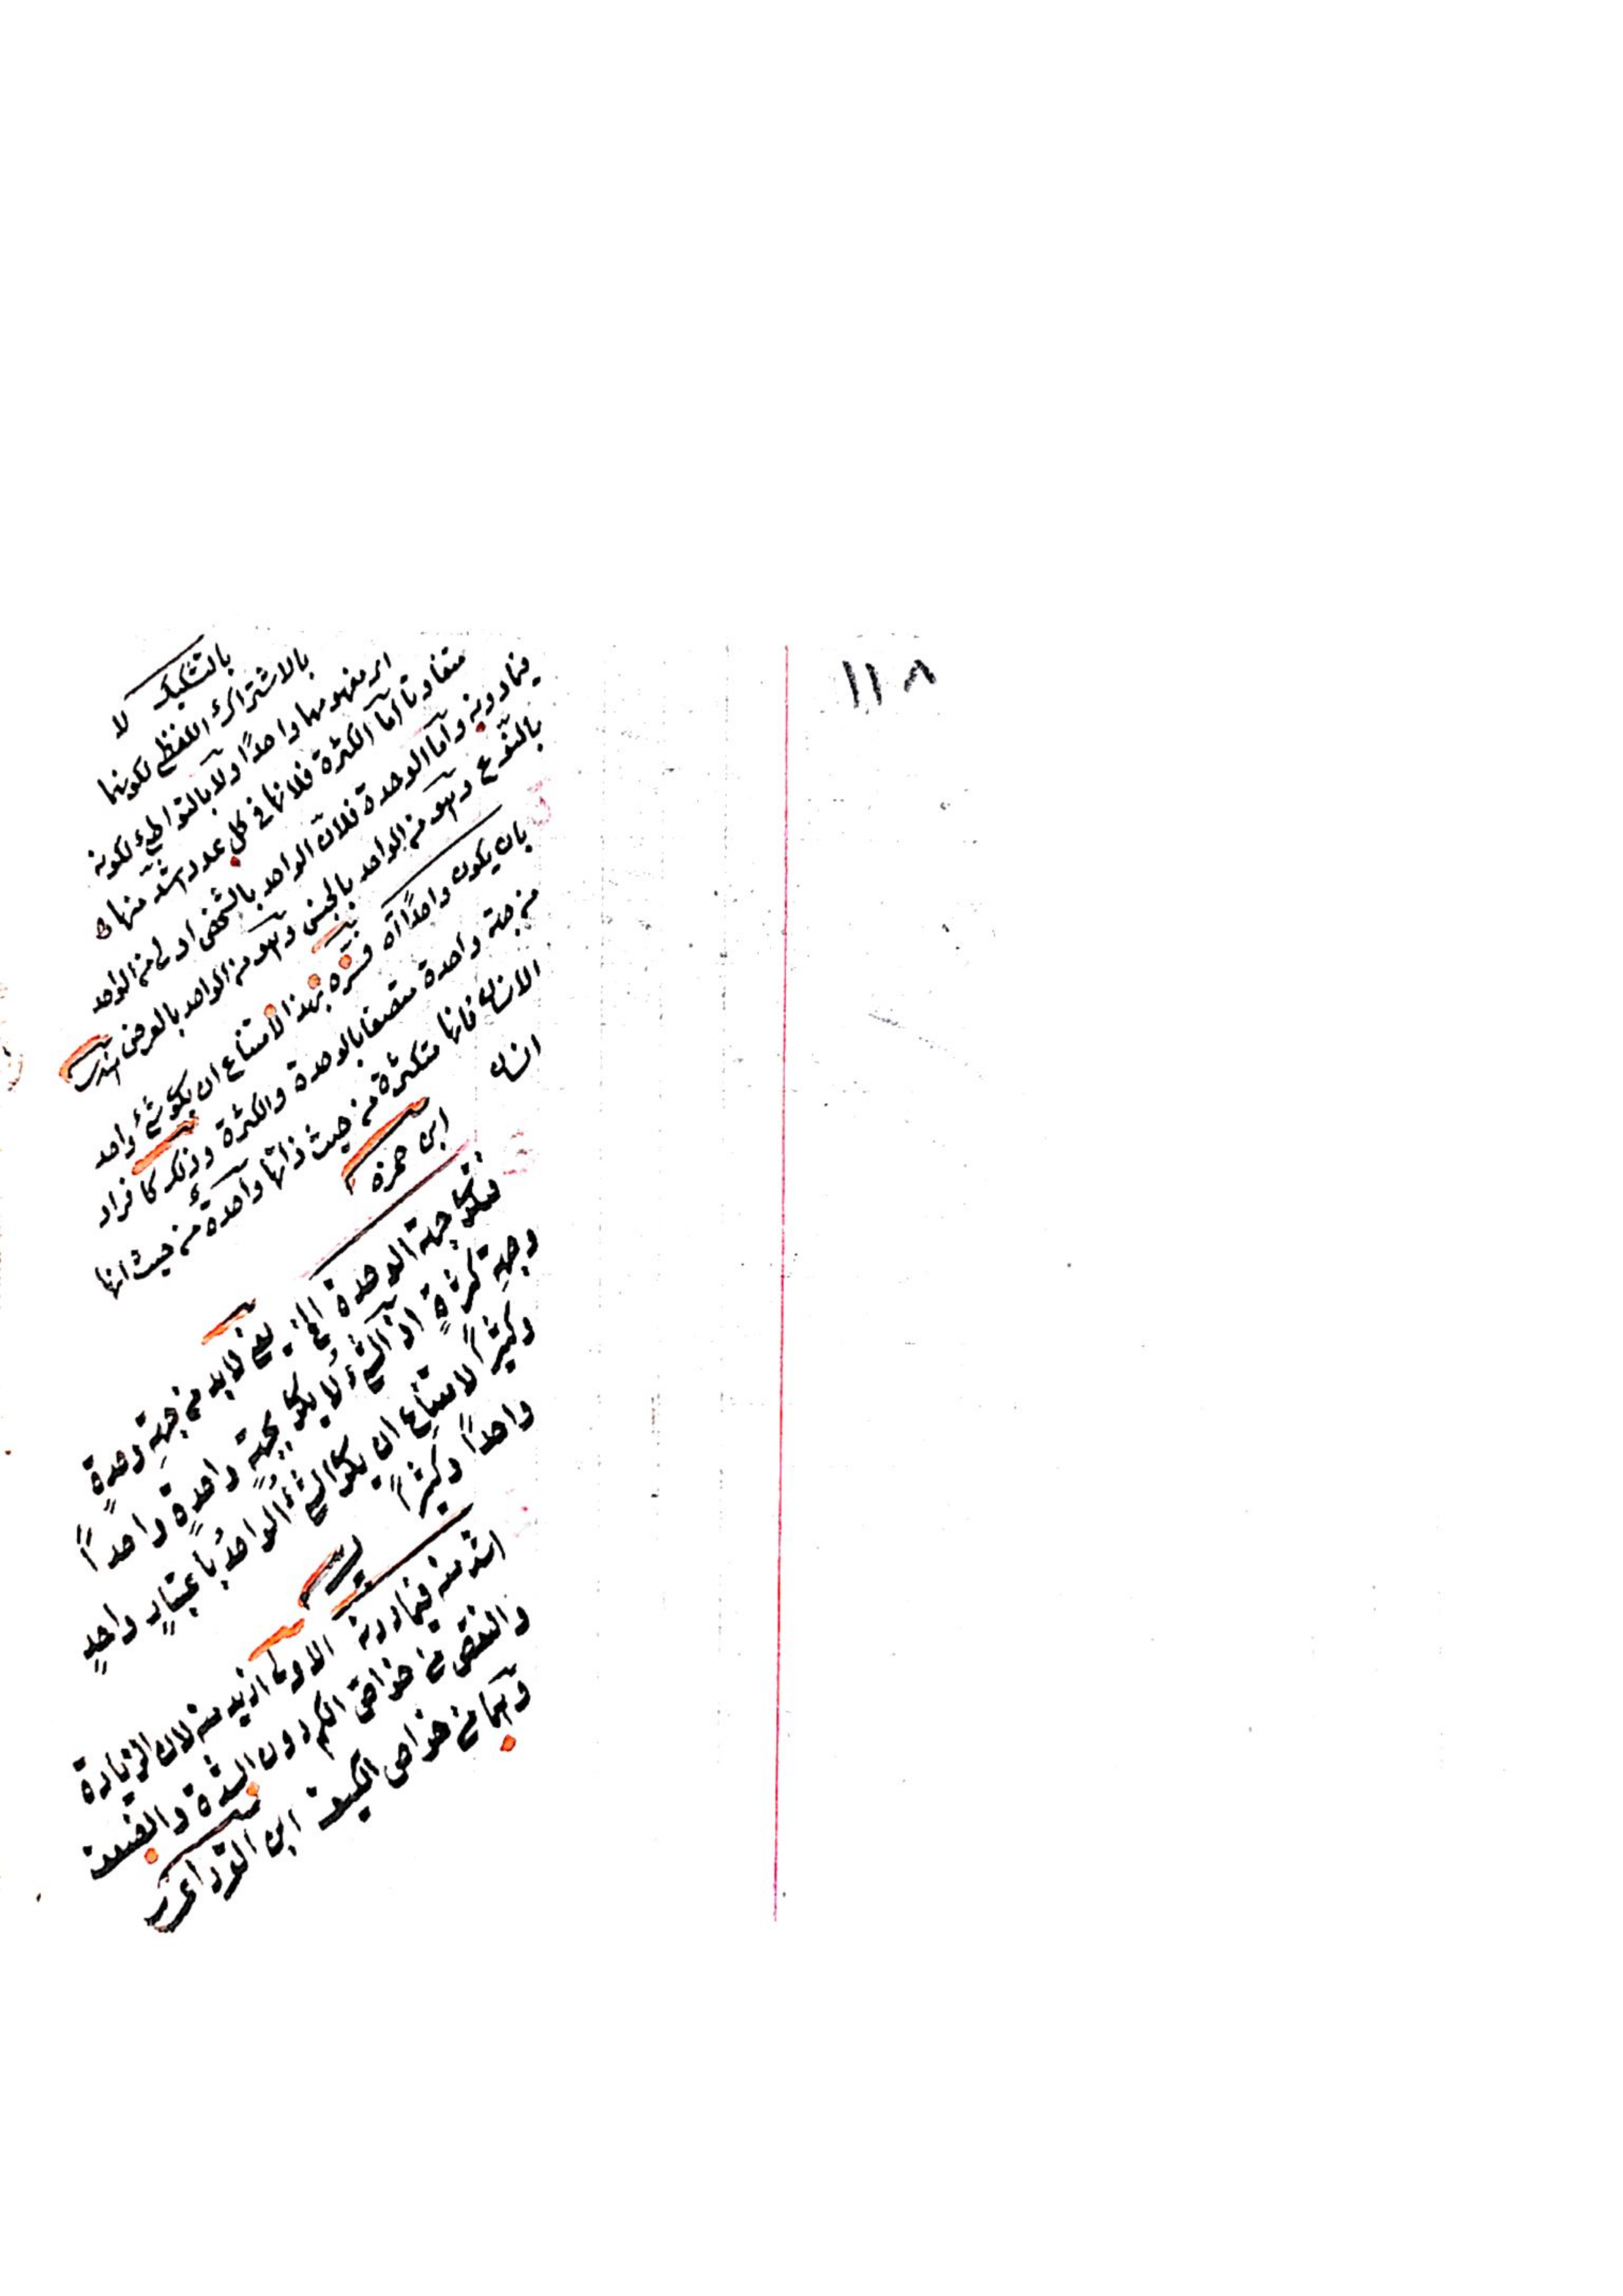 ١١٨
بالتشكيك لا
بالاشتراك اللفظي لكونها
اى مفهومها واحدًا ولا بالتواطئ لكونه
متفاوتا أمّا الكثرة فلانها في كل عدد اشدّ منها
فيما دونه وأما الوحدة فلان الواحد بالشخص اولى من الواحد
بالنّوع وهو من الواحد بالجنس وهو من الواحد بالعرض
بان يكون واحدًا اه فسّره بهذا لامتناع ان يكون شئ واحد
من جهة واحدة متصفا بالوحدة والكثرة وذلك كافراد
الانسان فانها متكثرة من حيث ذاتها واحدة من حيث انها
انسان ابن حمزه
فتكون جهة الوحدة الخ يعنى لابد من جهةِ وحدةٍ
وجهةِ كثرةٍ اذ الشئ لا يكون بجهةٍ واحدةٍ واحداً
وكثيراً لامتناع ان يكون الشئُ الواحدُ باعتبارٍ واحدٍ
واحداً وكثيراً
اشد منه فيما دونه الاولى ازيد منه لان الزيادة
والنقص من خواص الكم دون الشدة والضعف
وهما من خواص الكيف ابن القزداغى